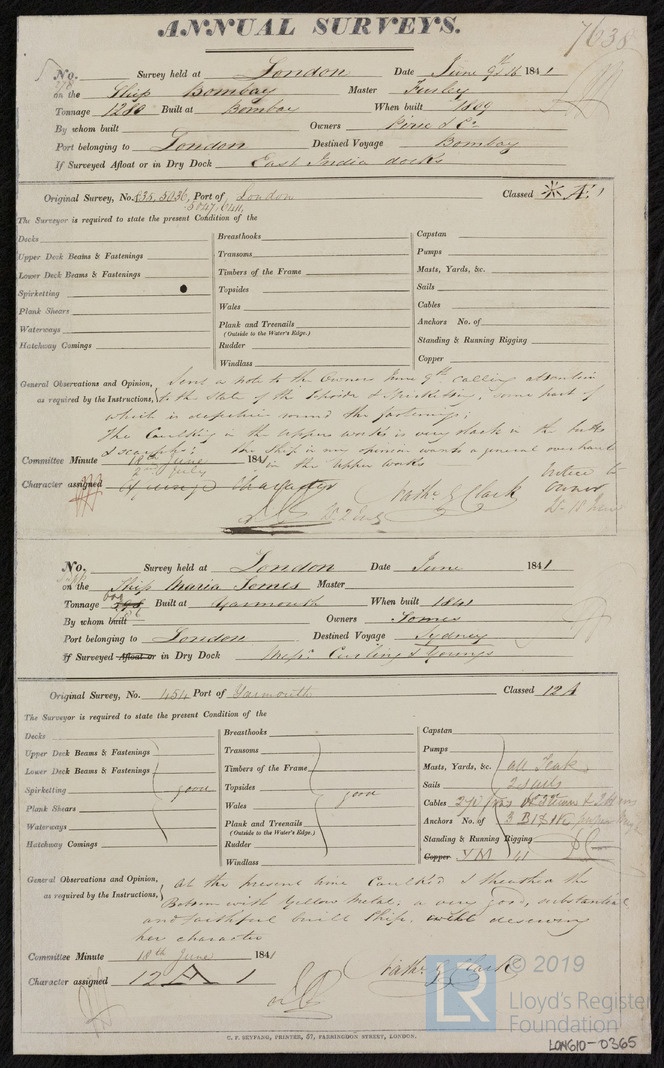 ANNUAL SURVEYS.
7638
No. Survey held at London Date June 9th 16 1841
on the Ship Bombay Master Furley
Tonnage 1280 Built at Bombay When built 1809
By whom built Owners Pirie & Co
Port belonging to London Destined Voyage Bombay
If Surveyed Afloat or in Dry Dock East India docks
Original Survey, No. 535, 5036 Port of London Classed A 1
5047, 6411
The Surveyor is required to state the present Condition of the
Decks
Upper Deck Beams & Fastenings
Lower Deck Beams & Fastenings
Spirketting
Plank Shears
Waterways
Hatchway Comings
Breasthooks
Transoms
Timbers of the Frame
Topsides
Wales
Plank and Treenails
(Outside to the Water's Edge.)
Rudder
Windlass
Capstan
Pumps
Masts, Yards, &c.
Sails
Cables
Anchors No. of
Standing & Running Rigging
Copper
General Observations and Opinion, Sent a note to the Owners June 9th calling attention
as required by the Instructions, to the State of the Topsides & Spirketting, some part of
which is defective round the fastenings;
The Caulking in the uppers works is very slack in the butts
& scarphs; the Ship in my opinion wants a general overhaul
in the Upper works
Committee Minute 18th June 1841
2nd July
Character assigned Character
Nathl. G Clark
notice to
owner
No. Survey held at London Date June 1841
on the Ship Maria Somes Master
Tonnage Built at Yarmouth When built 1841
By whom built Owners Somes
Port belonging to London Destined Voyage Sydney
If Surveyed Afloat or in Dry Dock Messrs Curling & Youngs
Original Survey, No. 454 Port of Yarmouth Classed 12 A
The Surveyor is required to state the present Condition of the
Decks
Upper Deck Beams & Fastenings
Lower Deck Beams & Fastenings
Spirketting good
Plank Shears
Waterways
Hatchway Comings
Breasthooks
Transoms
Timbers of the Frame
Topsides
Wales good
Plank and Treenails
(Outside to the Water's Edge.)
Rudder
Windlass
Capstan
Pumps
Masts, Yards, &c. all Teak
Sails 2 suits
Cables
Anchors No. of 3 B 1 S 1 K
Standing & Running Rigging
Copper YM 41
General Observations and Opinion, At the present time Caulked & Sheathed the
as required by the Instructions, Bottom with Yellow Metal; a very good, substantial
and faithful built Ship, well deserving
her character
Committee Minute 18th June 1841
Character assigned 12 A 1
Nathl. G Clark
C. F. SEYFANG, PRINTER, 57, FARRINGDON STREET, LONDON.
LR
© 2019
Lloyd's Register
Foundation
LON610-0365